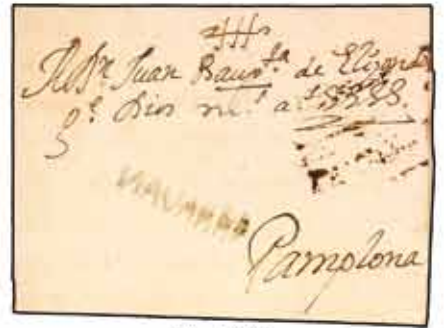 A Dn Juan Baupta de Elizondo
ge Dios ms as
NAVARRA
Pamplona